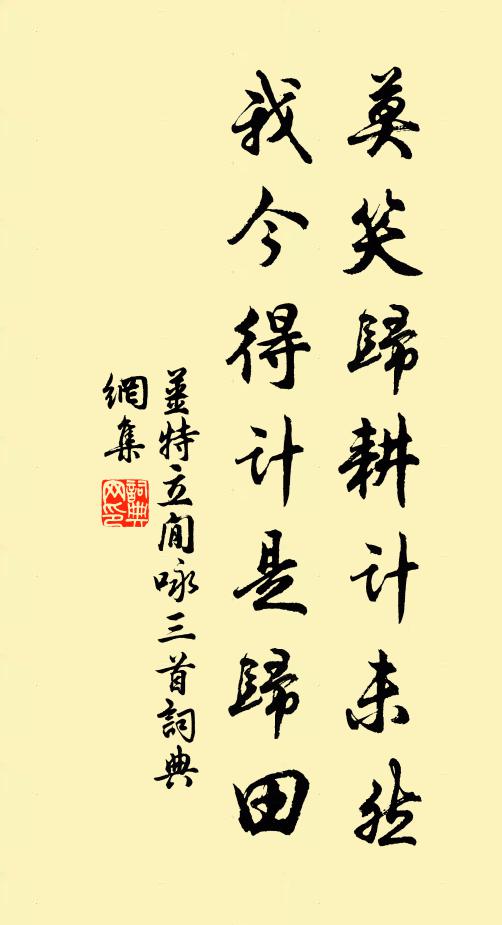 莫笑歸耕計未然
我今得計是歸田
薑特立閒咏三首詞典
網集
詞典
网印